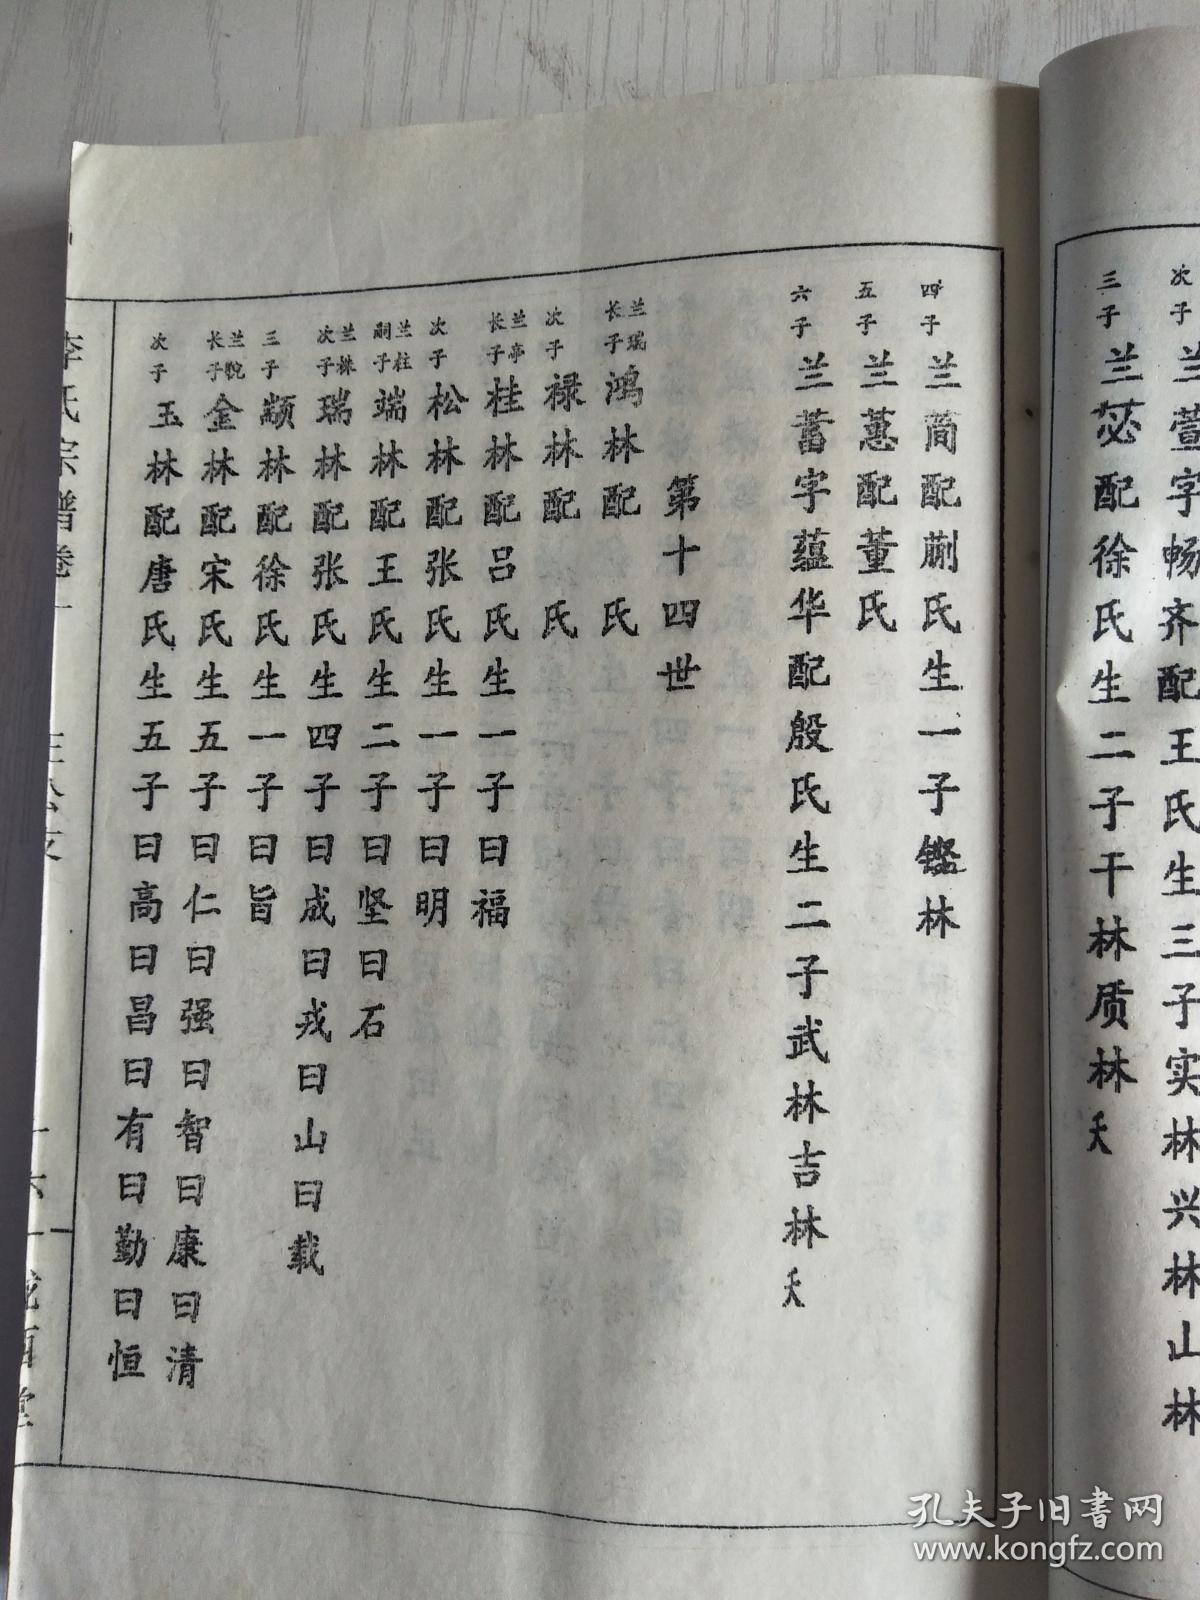 次子兰萱字畅齐配王氏生三子实林兴林山林
三子兰苾配徐氏生二子干林质林夭
四子兰蕳配蒯氏生一子铿林
五子兰蕙配董氏
六子兰蓄字蕴华配殷氏生二子武林吉林夭
第十四世
兰瑞长子鸿林配 氏
次子禄林配 氏
兰亭长子桂林配吕氏生一子曰福
次子松林配张氏生一子曰明
兰柱嗣子端林配王氏生二子曰坚曰石
兰株次子瑞林配张氏生四子曰成曰戎曰山曰载
三子颛林配徐氏生一子曰旨
兰畹长子金林配宋氏生五子曰仁曰强曰智曰康曰清
次子玉林配唐氏生五子曰高曰昌曰有曰勤曰恒
李氏宗谱卷
孔夫子旧书网
www.kongfz.com